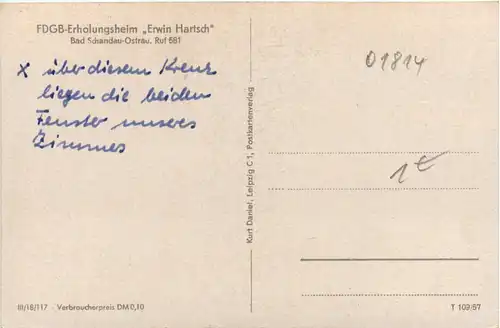 FDGB-Erholungsheim „Erwin Hartsch"
Bad Schandau-Ostrau. Ruf 681
x über diesem Kreuz
liegen die beiden
Fenster unseres
Zimmes
III/18/117 · Verbraucherpreis DM 0,10
Kurt Daniel, Leipzig C 1, Postkartenverlag
01814
1€
T 109/57